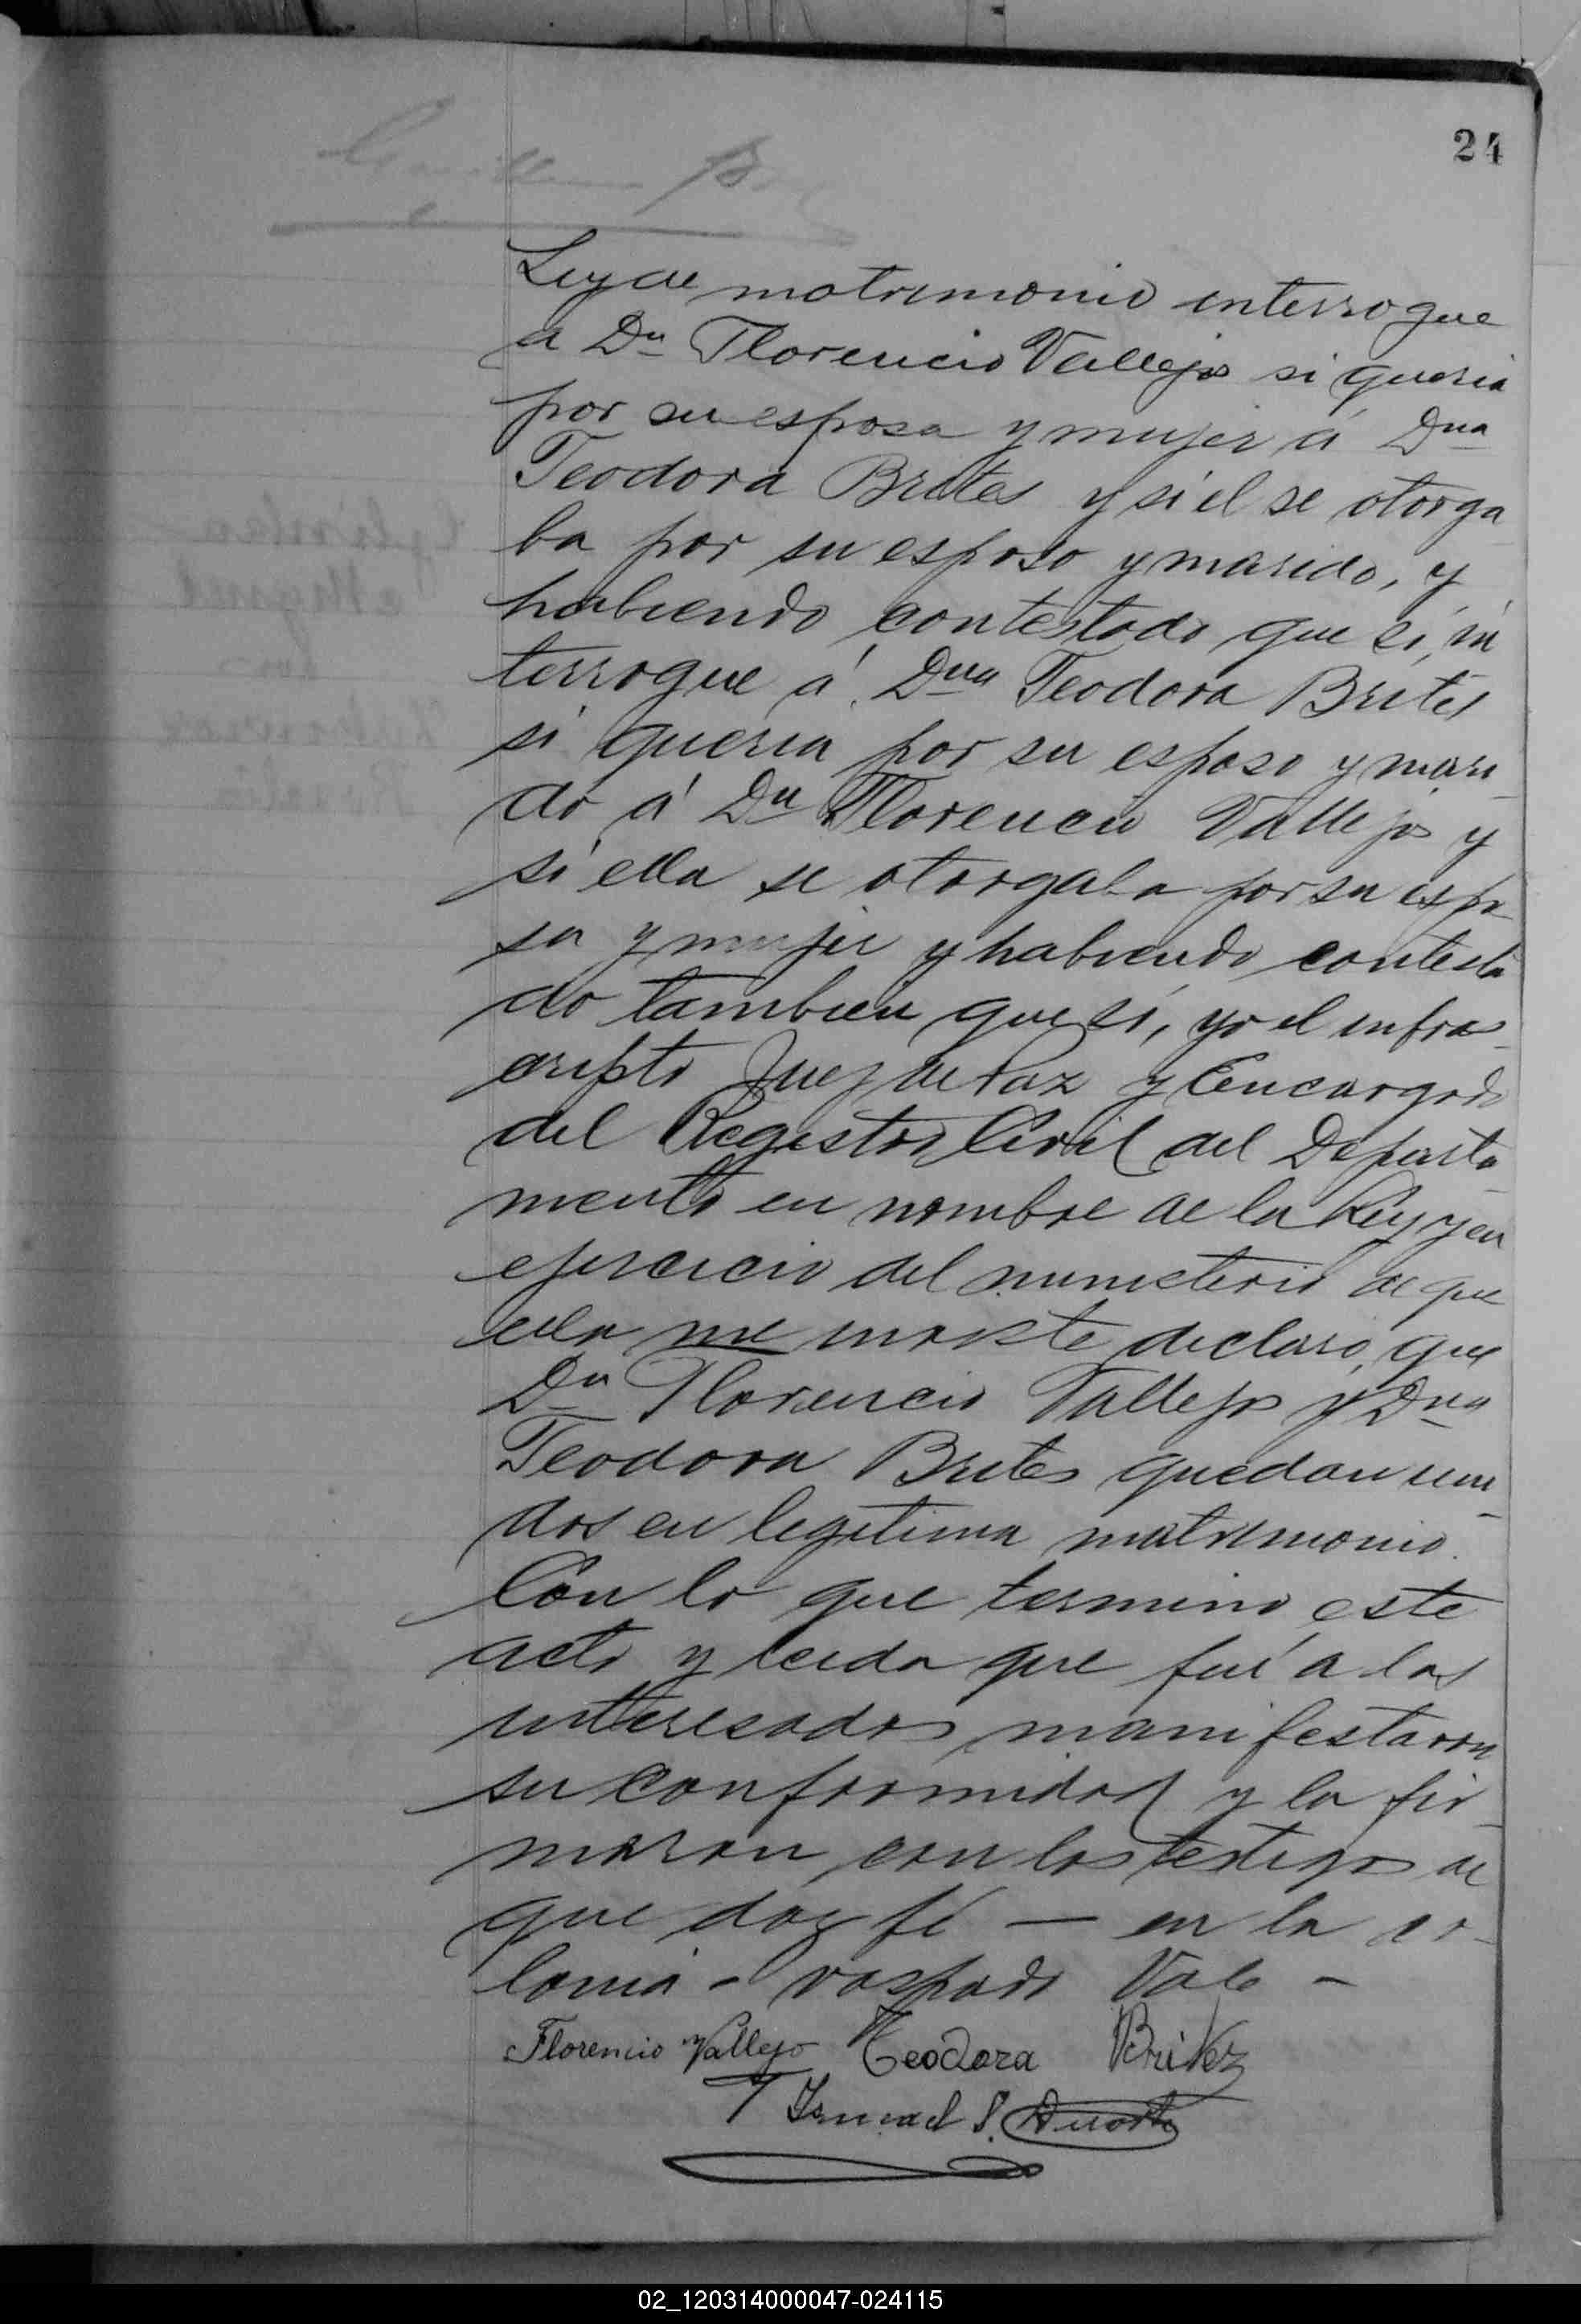 24
Ley de matrimonio interrogue
a Dn Florencio Vallejos si queria
por su esposa y mujer á Dna
Teodora Brites y si el se otorga
ba por su esposo y marido, y
habiendo contestado que si, in
terrogue á Dna Teodora Brites
si queria por su esposo y mari
do á Dn Florencio Vallejos y
si ella se otorgaba por su espo
sa y mujer y habiendo contesta
do tambien que si, yo el infras
cripto Juez de Paz y Encargado
del Registro Civil del Departa
mento en nombre de la Ley y en
ejercicio del ministerio de que
ella me inviste declaro, que
Dn Florencio Vallejos y Dna
Teodora Brites quedan uni
dos en legitima matrimonio.
Con lo que termino este
acto y leida que fué a los
interesados manifestaron
su conformidad y la fir
maron con los testigos de
que doy fé — en la co-
lonia - raspado Vale -
Florencio Vallejo Teodora Britez
T Ismael S. Duarte
02_120314000047-024115